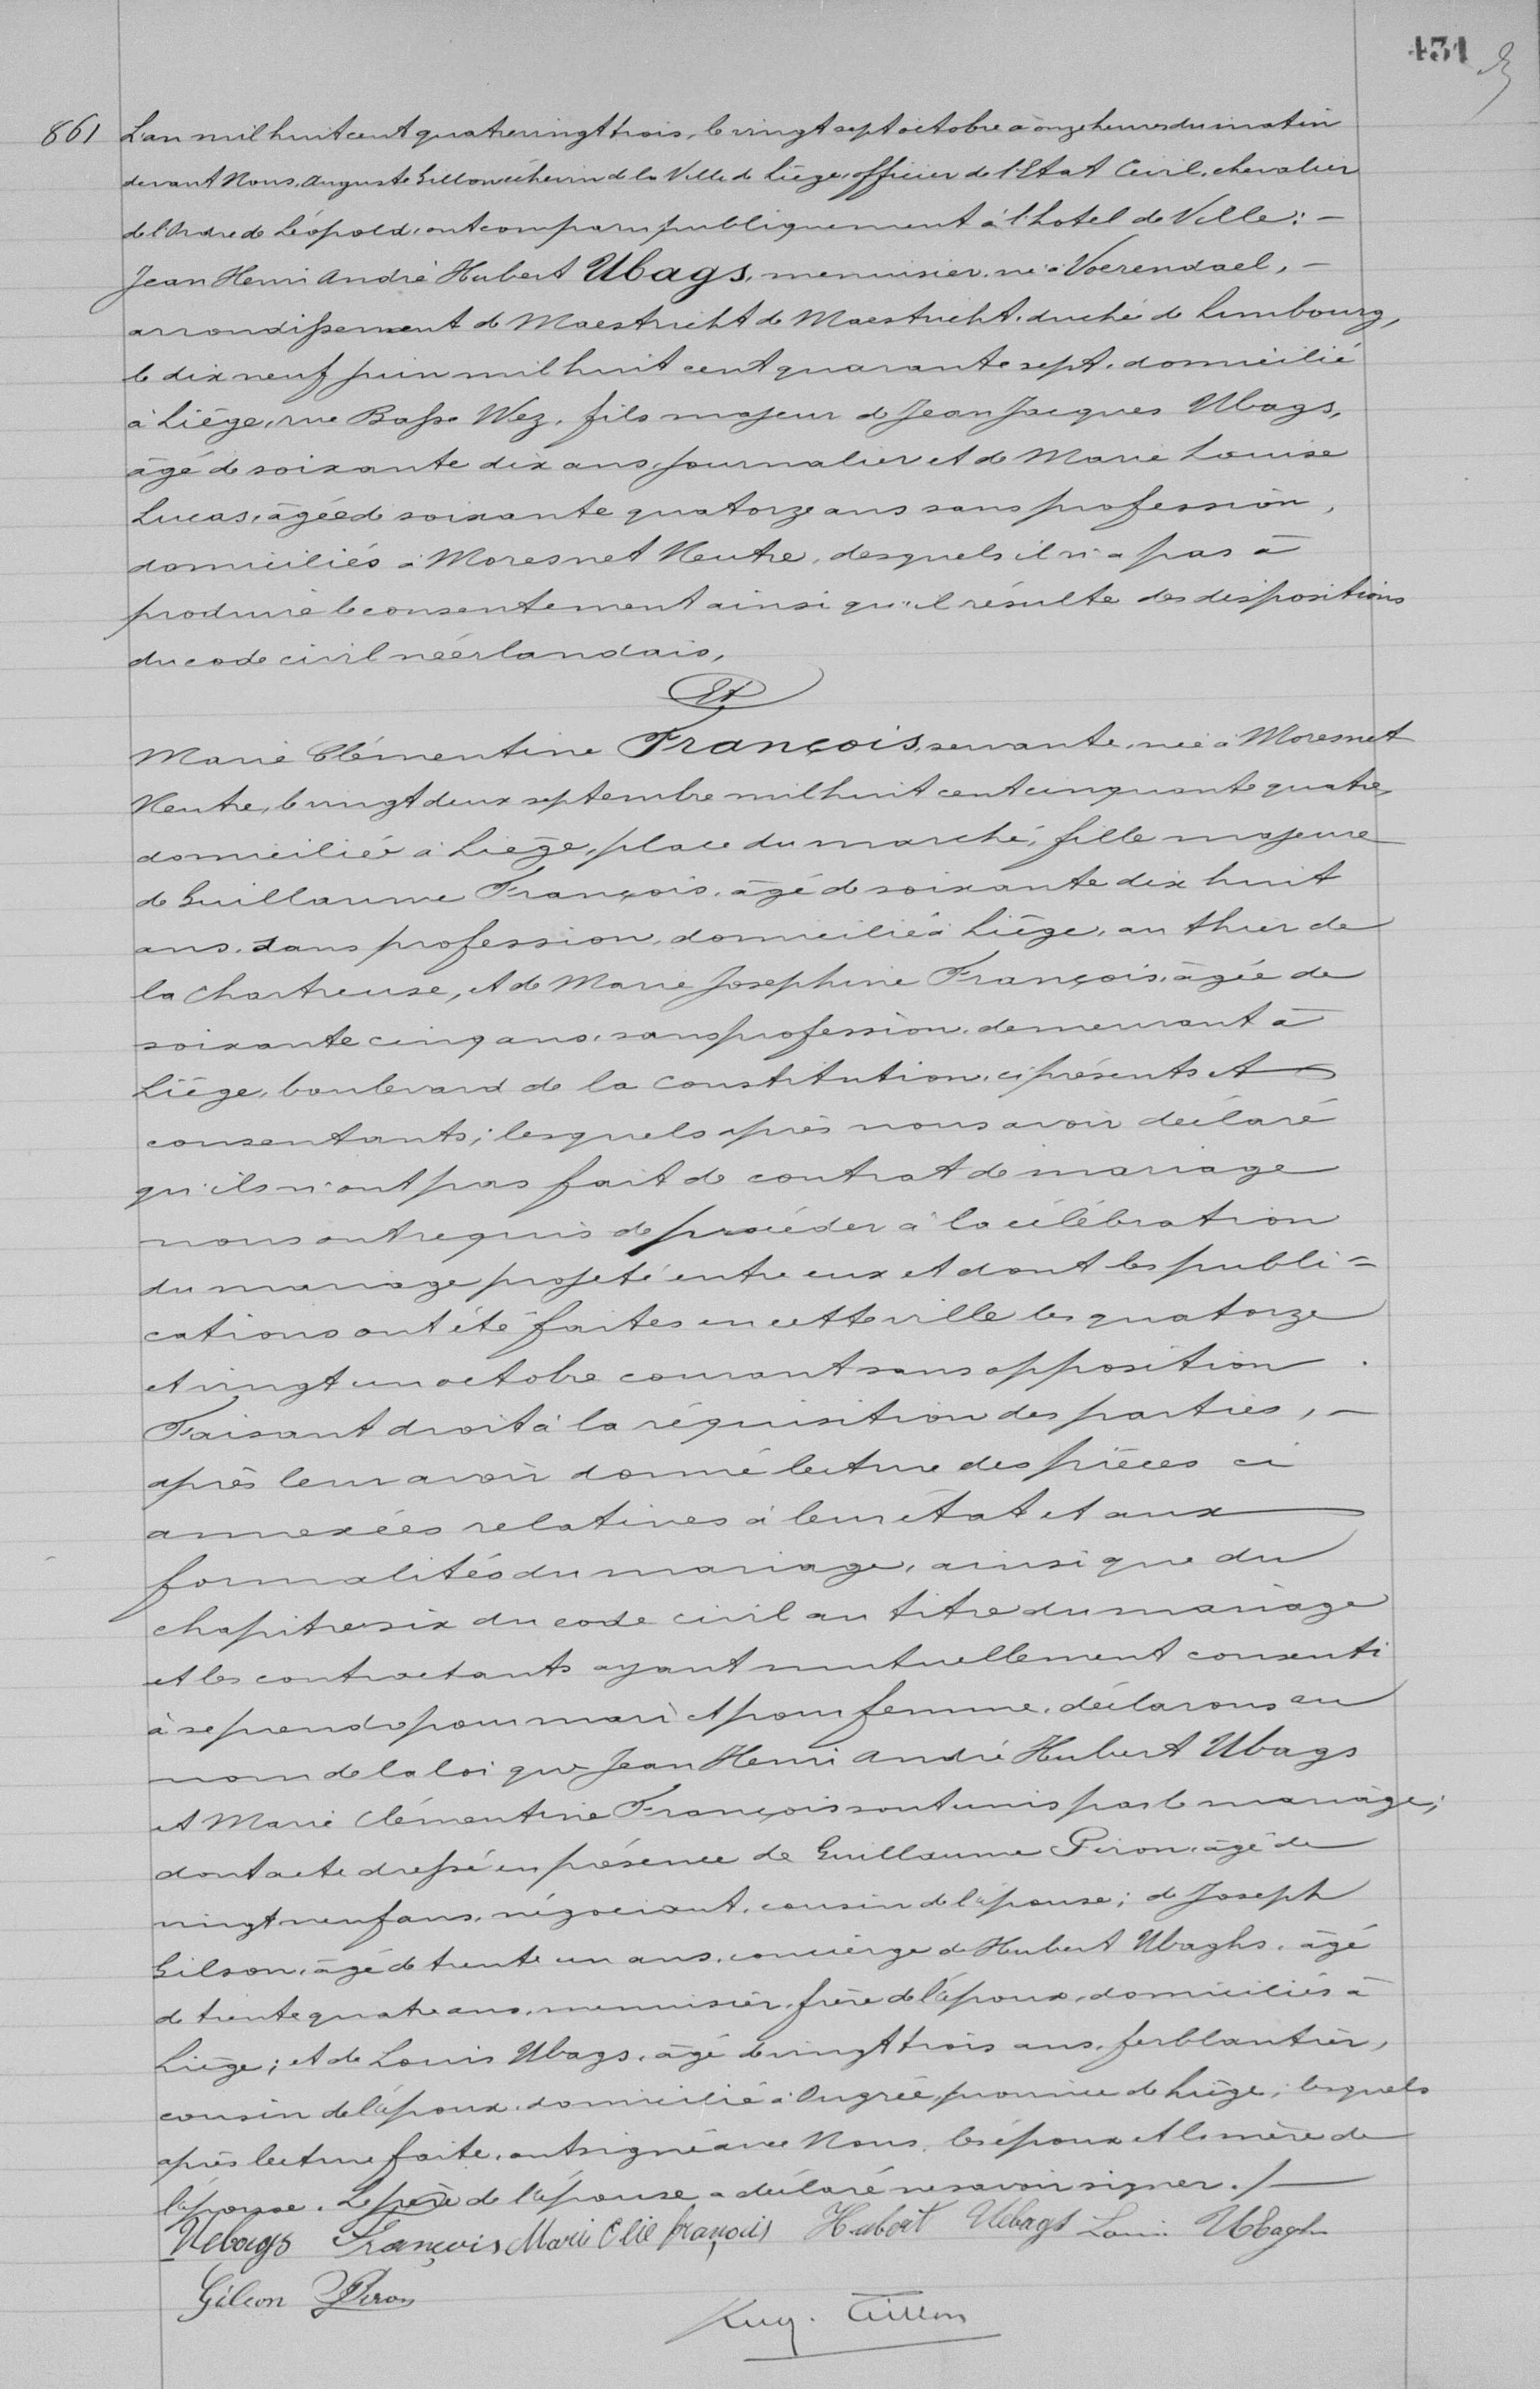 431
861 L'an mil huit cent quatre vingt trois, le vingt sept octobre à onze heures du matin
devant Nous, Auguste Gillon échevin de la Ville de Liège, officier de l'Etat Civil, chevalier
de l'Ordre de Léopold, ont comparu publiquement à l'hotel de Ville: –
Jean Henri André Hubert Ubags, menuisier, né à Voerendael, –
arrondissement de Maestricht de Maestricht, duché de Limbourg,
le dix neuf juin mil huit cent quarante sept, domicilié
à Liège, rue Basse Wez, fils majeur de Jean Jacques Ubags,
âgé de soixante dix ans, journalier et de Marie Louise
Lucas, âgée de soixante quatorze ans sans profession,
domiciliés à Moresnet Neutre, desquels il n'a pas à
produire le consentement ainsi qu'il résulte des dispositions
du code civil néerlandais,
Et
Marie Clémentine François, servante, née à Moresnet
Neutre, le vingt deux septembre mil huit cent cinquante quatre,
domiciliée à Liège, place du marché, fille majeure
de Guillaume François, âgé de soixante dix huit
ans, sans profession, domicilié à Liège, au thier de
la Chartreuse, et de Marie Josephine François, âgée de
soixante cinq ans, sans profession, demeurant à
Liège, boulevard de la Constitution, ci présents et
consentants; lesquels après nous avoir déclaré
qu'ils n'ont pas fait de contrat de mariage
nous ont requis de procéder à la célébration
du mariage projeté entre eux et dont les publi=
cations ont été faites en cette ville les quatorze
et vingt un octobre courant sans opposition.
Faisant droit à la réquisition des parties, –
après leur avoir donné lecture des pièces ci
annexées relatives à leur état et aux
formalités du mariage, ainsi que du
chapitre six du code civil au titre du mariage
et les contractants ayant mutuellement consenti
à se prendre pour mari et pour femme, déclarons au
nom de la loi que Jean Henri André Hubert Ubags
et Marie Clémentine François sont unis par le mariage;
dont acte dressé en présence de Guillaume Piron, âgé de
vingt neuf ans, négociant, cousin de l'épouse; de Joseph
Gilson, âgé de trente un ans, concierge de Hubert Ubaghs, âgé
de trente quatre ans, menuisier, frère de l'époux, domiciliés à
Liège; et de Louis Ubags, âgé de vingt trois ans, ferblantier,
cousin de l'époux, domicilié à Ougrée, province de Liège; lesquels
après lecture faite, ont signé avec Nous, les époux et la mère de
l'épouse. Le père de l'épouse a déclaré ne savoir signer. /–
Uebags François Marie Clie françois Hubert Uebags Louis Ubaghs
Gilson Piron
Aug. Gillon